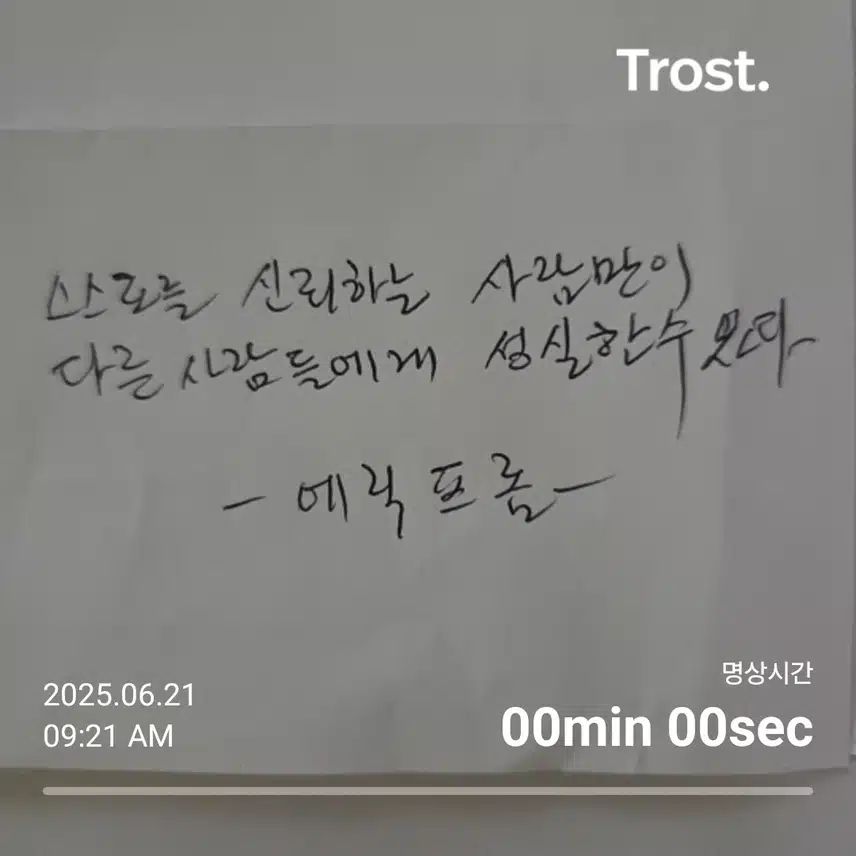 Trost.
스스로를 신뢰하는 사람만이
다른 사람들에게 성실할 수 있다
- 에릭 프롬 -
명상시간
2025.06.21
00min 00sec
09:21 AM